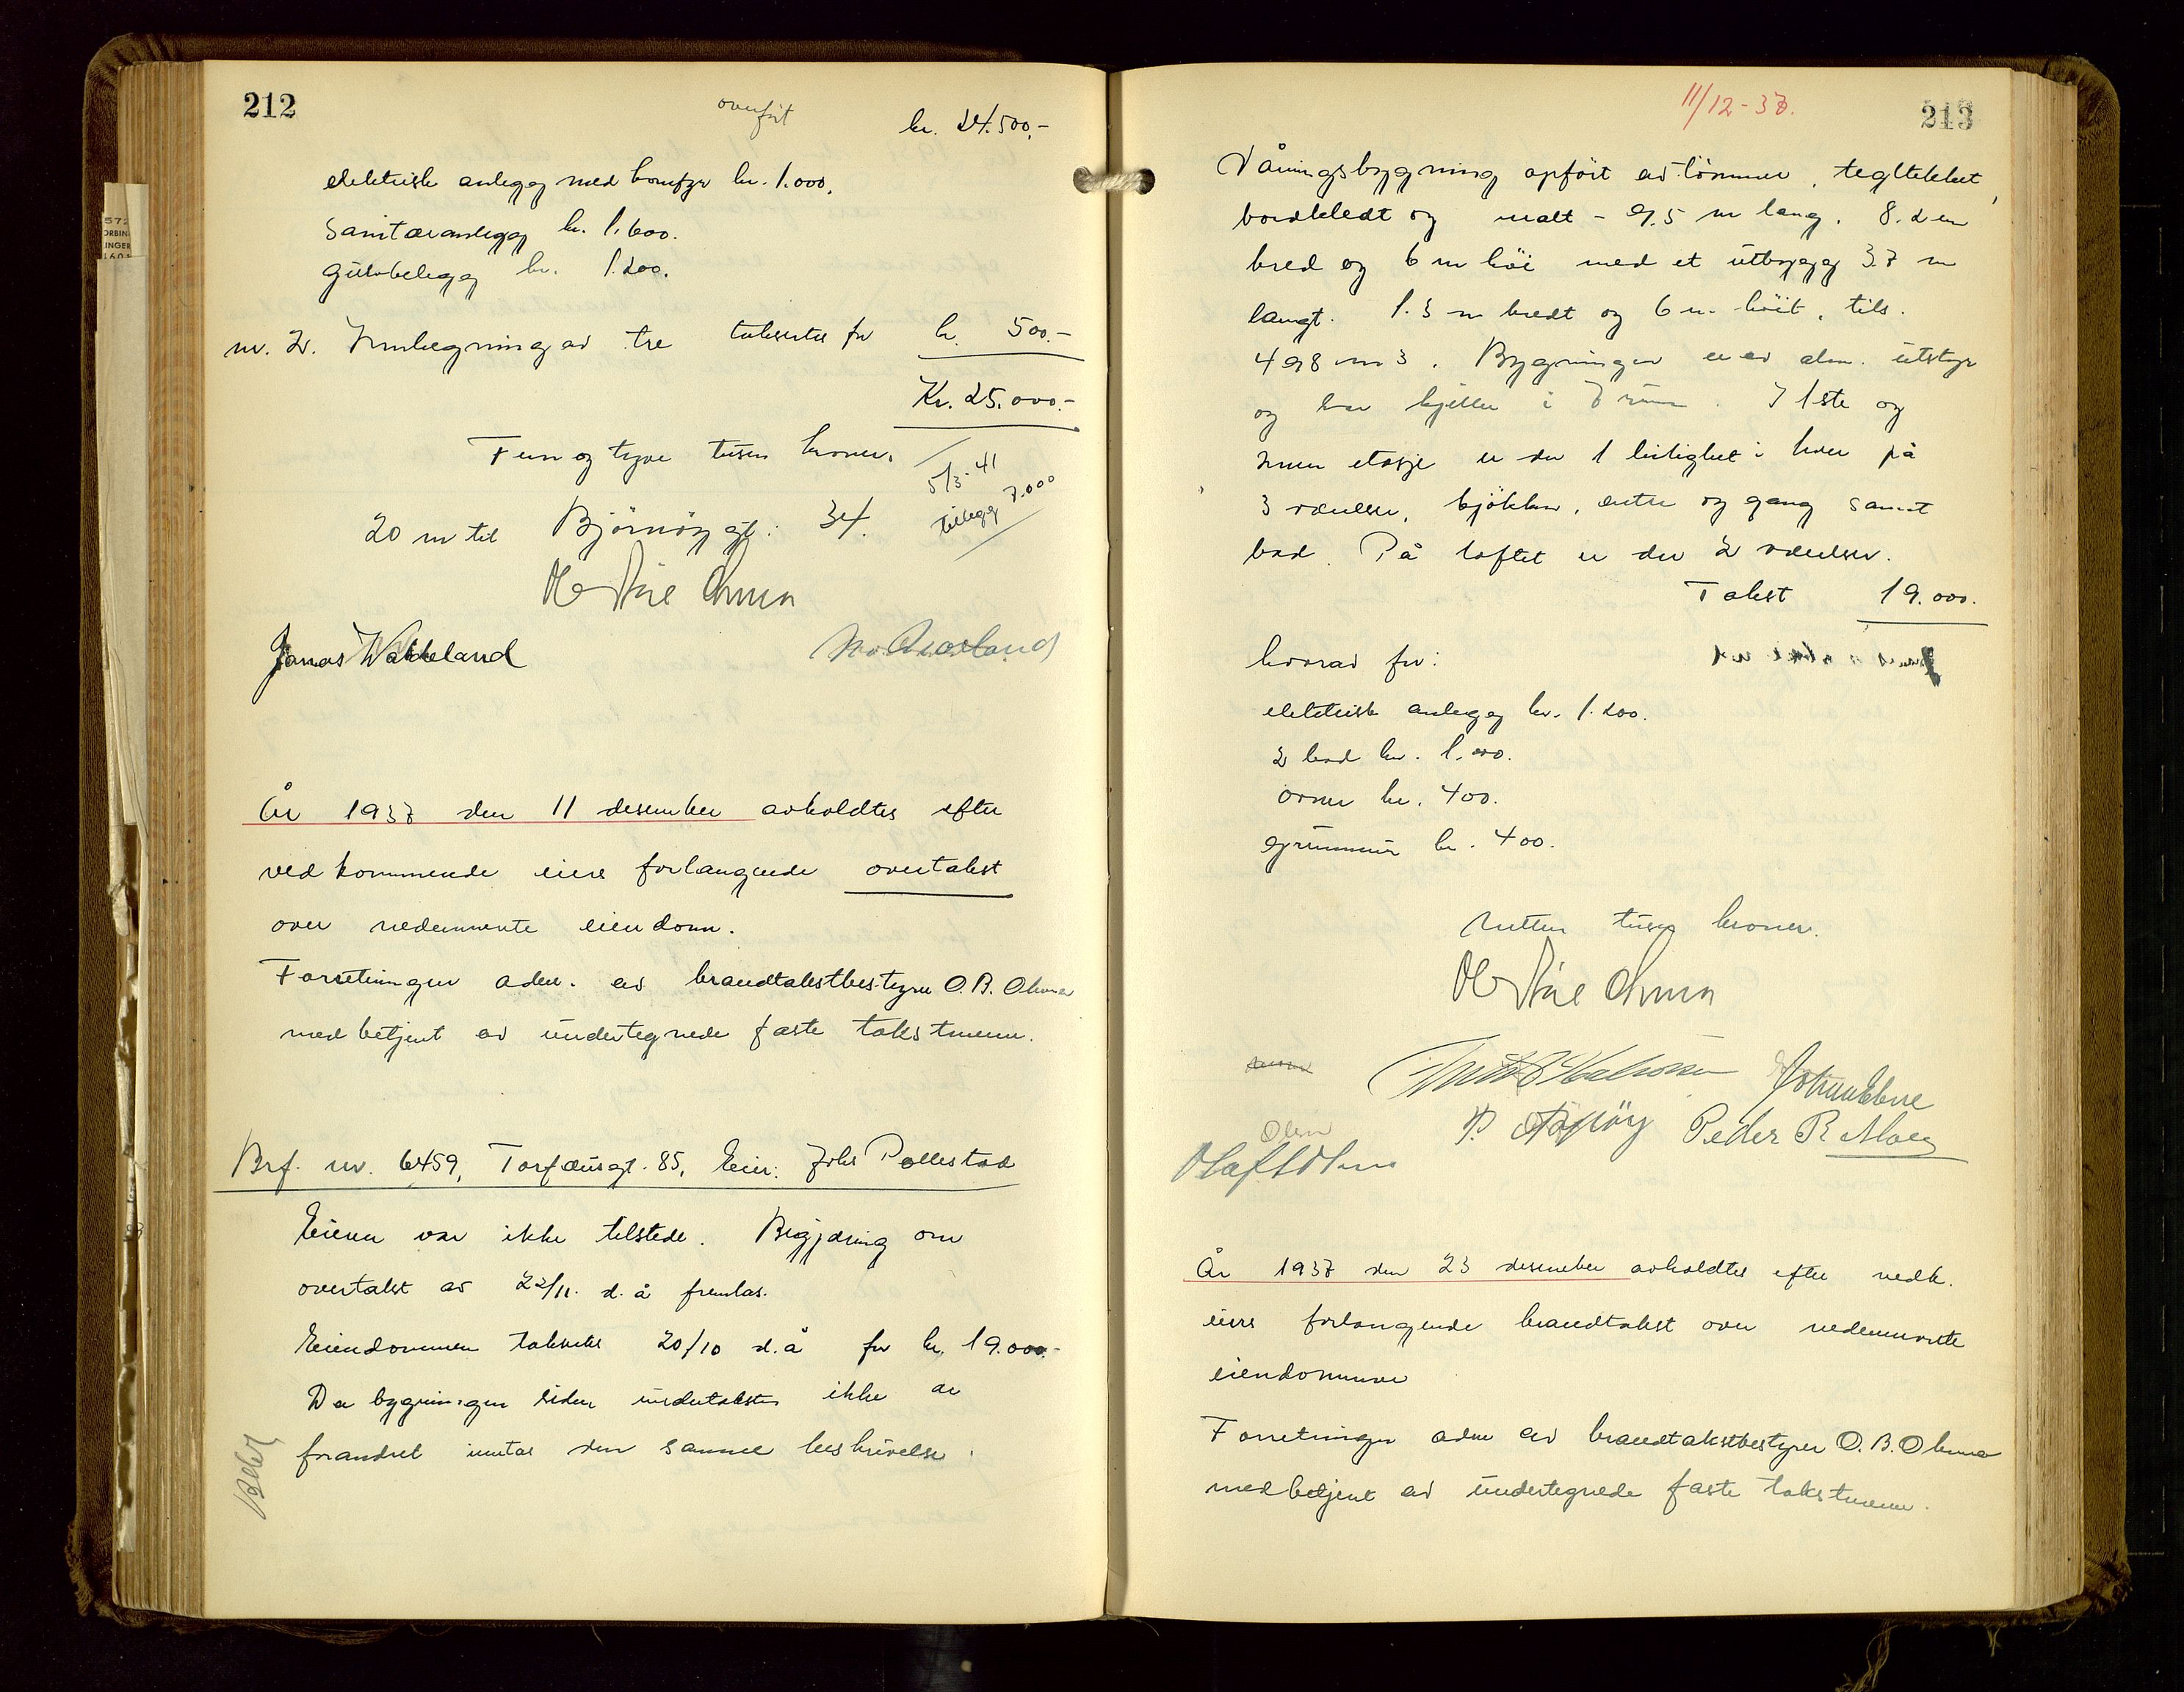 212
overført kr. 24.500,-
elektrisk anlegg med komfyr kr. 1.000,
Sanitæranlegg kr. 1.600.
Gulvbelegg kr. 1.200.
nr. 2. Innhegning av tre takseres for kr. 500.-
Kr. 25.000.-
Fem og tyve tusen kroner.
5/3-41
tillegg 7.000
20 m til Bjørnøy gt. 34.
Jonas Wakkeland
År 1937 den 11 desember avholdtes efter
vedkommende eiers forlangende overtakst
over nedennevnte eiendom.
Forretningen adm. av brandtakstbestyrer O. B. Ohma
med betjent av undertegnede faste takstmenn.
Brf. nr. 6459, Torfæusgt. 85, Eier: Johs Pollestad
Eieren var ikke tilstede. Begjæring om
overtakst av 22/11. d. å fremlas.
Eiendommen takseres 20/10 d. å for kr. 19.000.-
Da bygningen siden undertaksten ikke er
forandret inntas den samme beskrivelse.
11/12-37.
213
Våningsbygning opført av tømmer, tegltekket,
bordkledt og malt - 9.5 m lang, 8.2 m
bred og 6 m høi med et utbygg 3.7 m
langt. 1.3 m bredt og 6 m. høit, tils.
498 m3. Bygningen er av alm. utstyr
og har kjeller i 7 rum. I 1ste og
annen etasje er der 1 leilighet i hver på
3 værelser, kjøkken, entre og gang samt
bad. På loftet er der 2 værelser.
Takst 19.000.
hvorav for:
elektrisk anlegg kr. 1.200.
2 bad kr. 1.000.
ovner kr. 400.
grunnmur kr. 400.
Nitten tusen kroner.
Peder R. Moe
Olsen
Olaf Olsen
År 1937 den 23 desember avholdtes efter vedk.
eiers forlangende brandtakst over nedennevnte
eiendommer
Forretningen adm av brandtakstbestyrer O. B. Ohma
med betjent av undertegnede faste takstmenn.